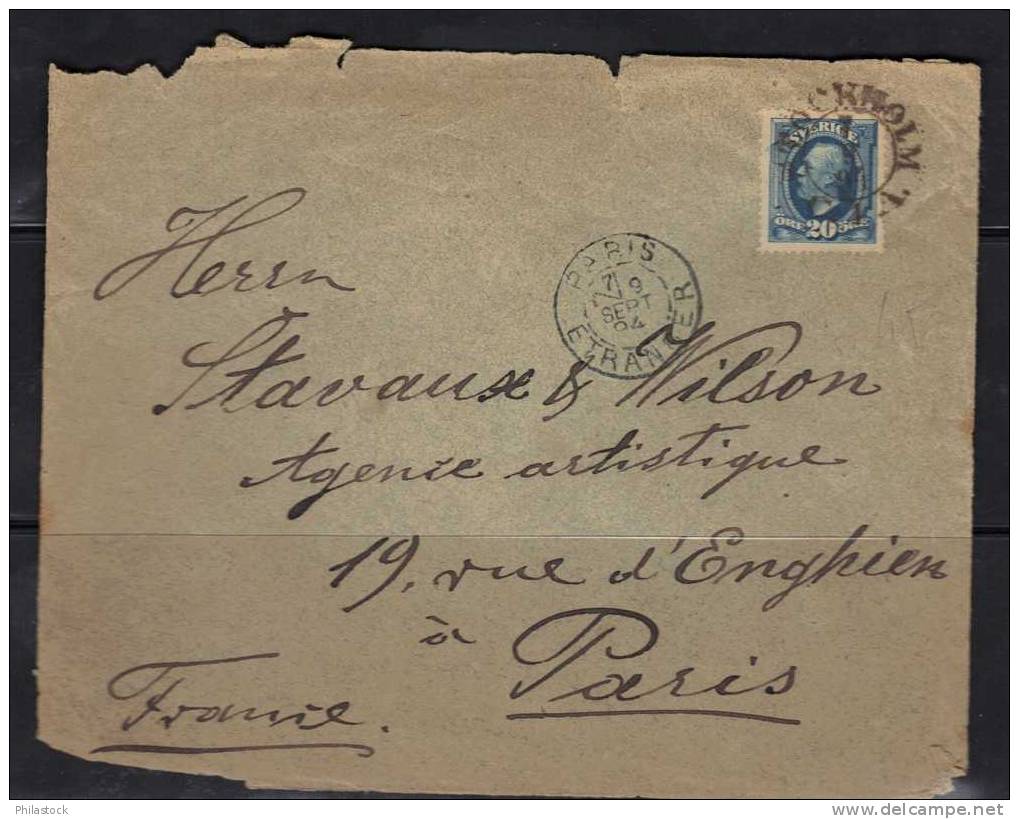 STOCKHOLM
SVERIGE
ÖRE 20 ÖRE
PARIS
7 9
SEPT
94
ETRANGER
Herrn
Stavaux & Wilson
Agence artistique
19, rue d'Enghien
à Paris
France.
Philastock
http://www.delcampe.net